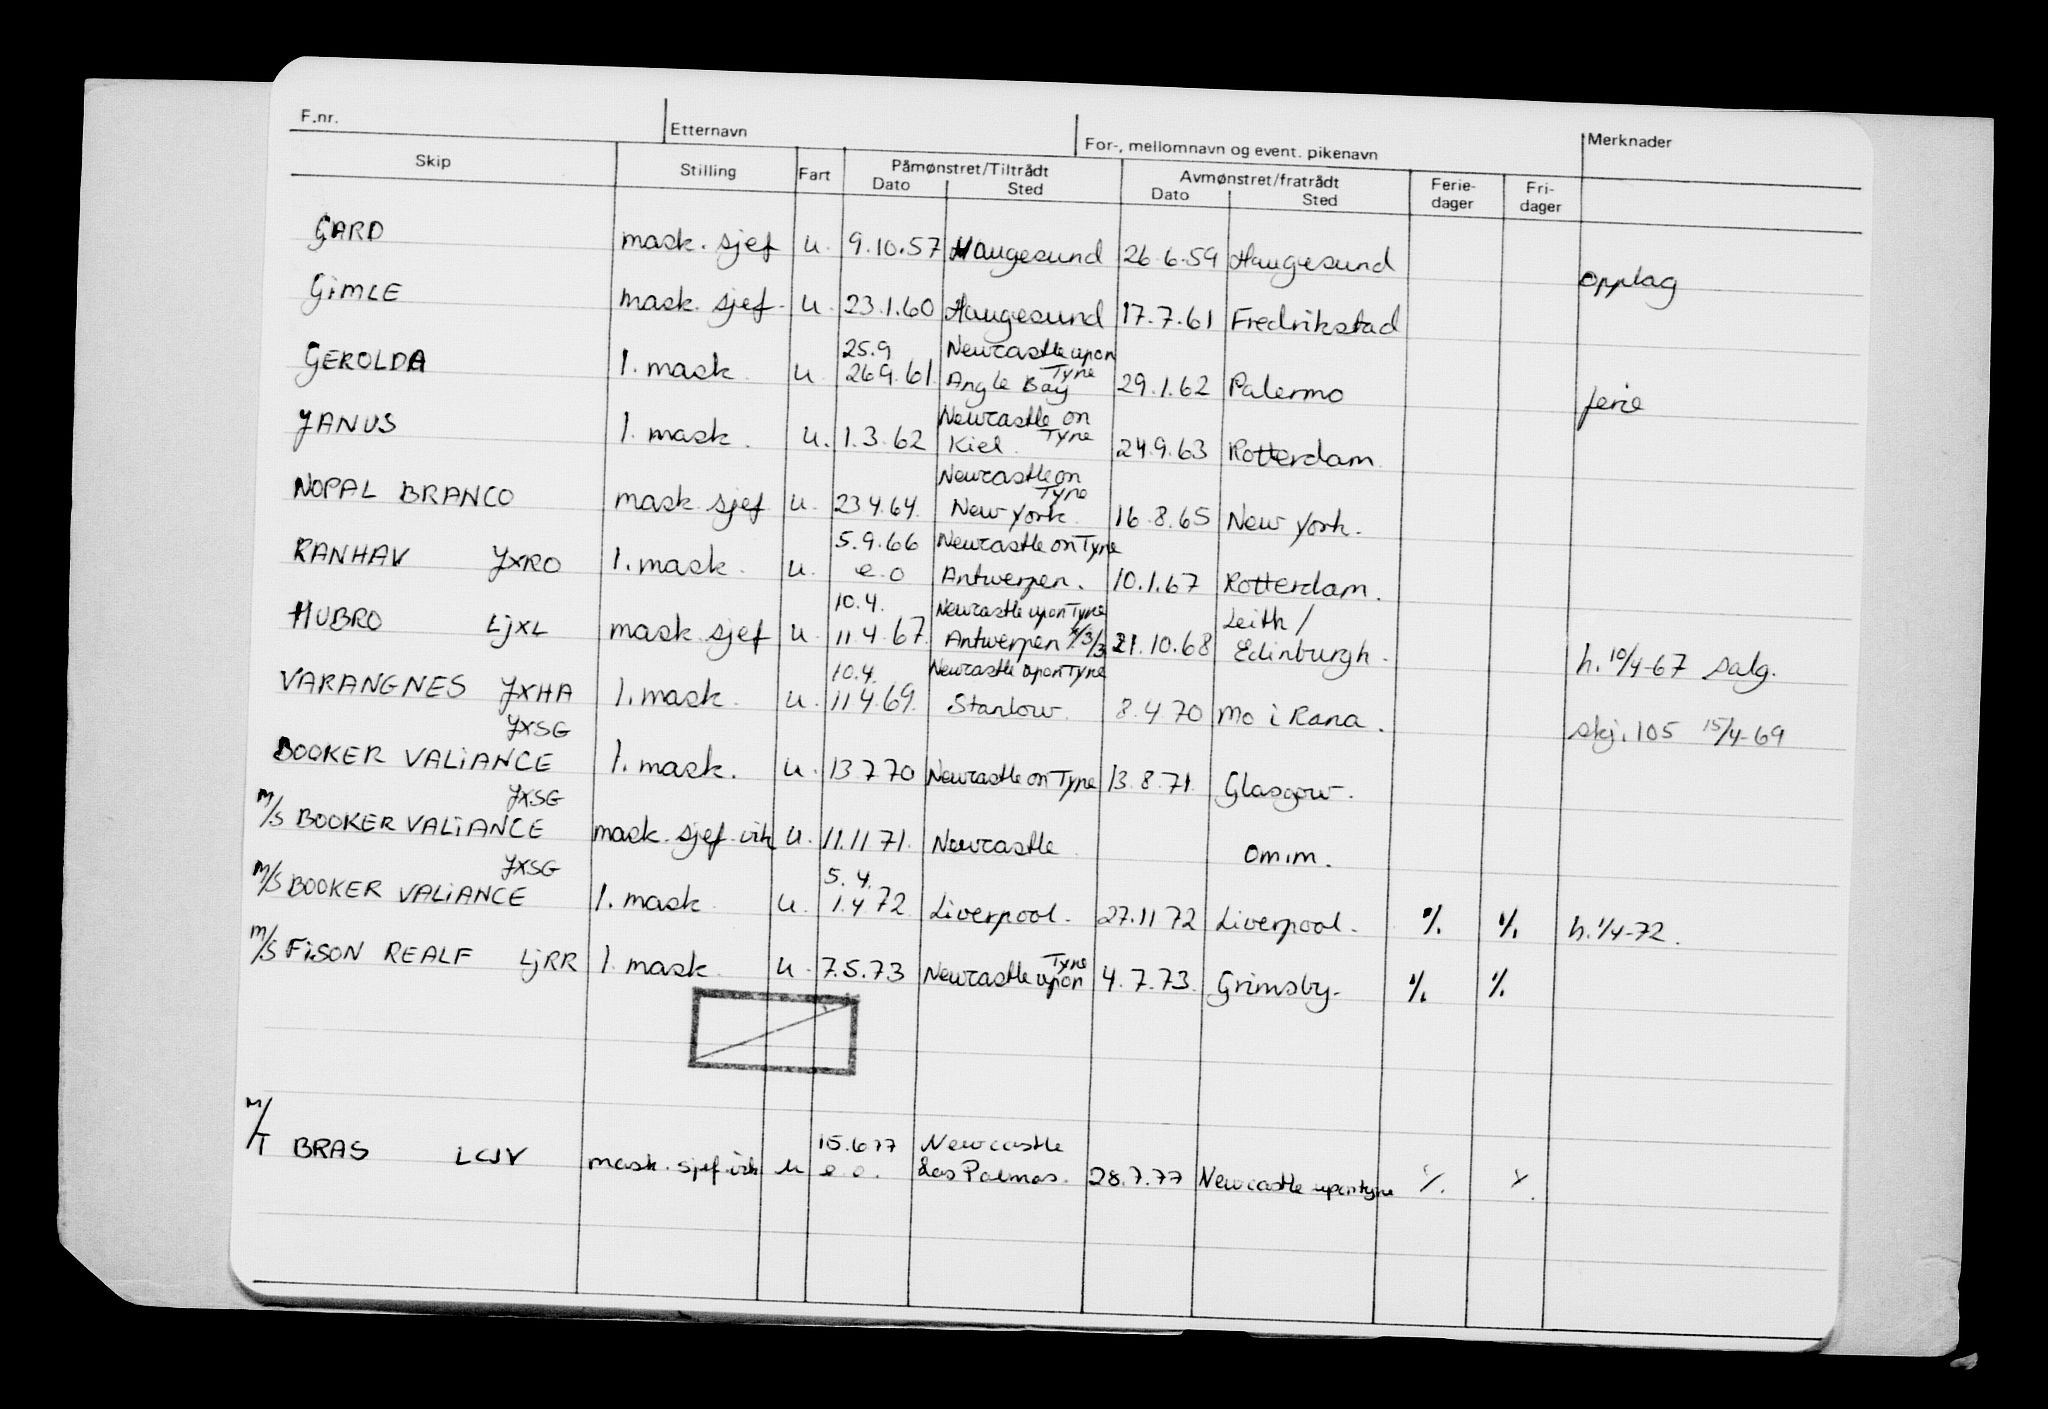 F.nr. Etternavn For-, mellomnavn og event. pikenavn Merknader
Skip Stilling Fart Påmønstret/Tiltrådt Avmønstret/fratrådt Ferie- Fri-
Dato Sted Dato Sted dager dager
GARD mask. sjef u. 9.10.57 Haugesund 26.6.59 Haugesund opplag
GiMLE mask. sjef. u. 23.1.60 Haugesund 17.7.61 Fredrikstad
25.9 Newcastle upon Tyne
GEROLDA 1. mask u. 26.9.61. Angle Bay 29.1.62 Palermo ferie
Newcastle on Tyne
JANUS 1. mask. u. 1.3.62 Kiel. 24.9.63 Rotterdam
Newcastle on Tyne
NOPAL BRANCO mask sjef u. 23 4.64. New York. 16.8.65 New York.
5.9.66 Newcastle on Tyne
RANHAV JXRO 1. mask. u. e.o Antwerpen. 10.1.67 Rotterdam.
10.4. Newcastle upon Tyne Leith/
HUBRO LjXL mask sjef u. 11.4.67. Antwerpen 21.10.68 Edinburgh. h. 10/4-67 salg.
10.4. Newcastle upon Tyne
VARANGNES JXHA 1. mask. u. 11 4.69. Stanlow. 8.4 70 Mo i Rana. skj. 105 15/4-69
JXSG
BOOKER VALiANCE 1. mask. u. 13 7 70 Newcastle on Tyne 13.8.71. Glasgow.
JXSG
M/S BOOKER VALiANCE mask. sjef vik u. 11.11 71. Newcastle omm.
JXSG 5.4.
M/S BOOKER VALiANCE 1. mask. u. 1.4 72. Liverpool. 27.11 72 Liverpool. % % h. 1/4-72.
M/S FiSON REALF LjRR 1. mask. u. 7.5.73 Newcastle upon Tyne 4.7.73. Grimsby. % %
15.6 77 Newcastle
M/T BRAS LCJV mask. sjef vik u e.o. Las Palmas. 28.7.77 Newcastle upon tyne % %